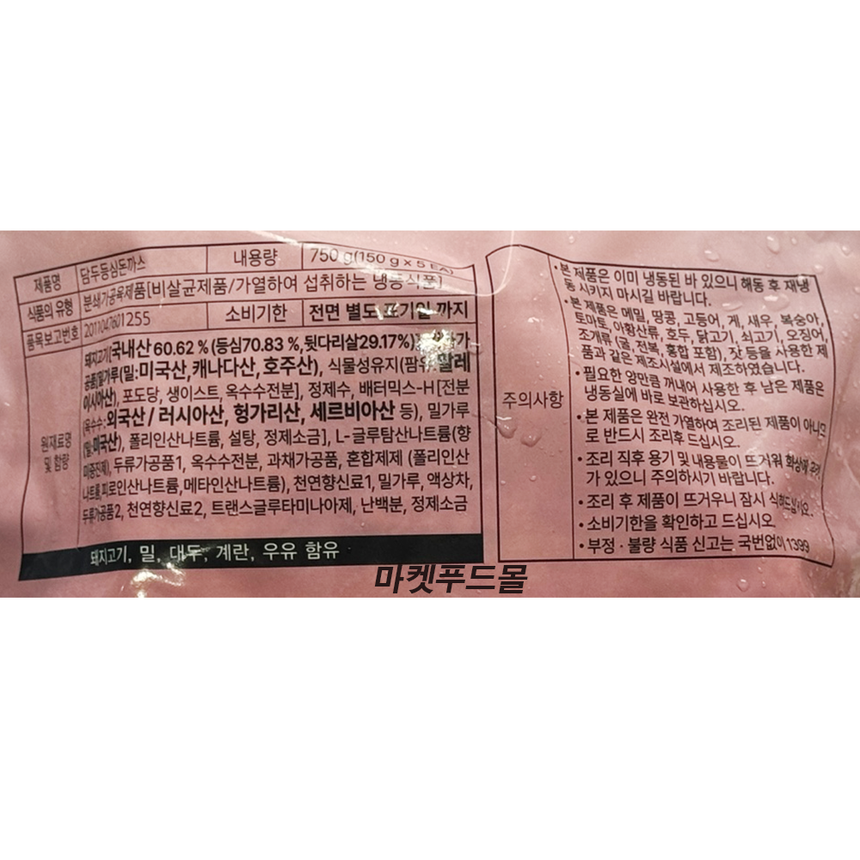 제품명 담두등심돈까스 내용량 750 g(150 g x 5 EA)
식품의 유형 분쇄가공육제품[비살균제품/가열하여 섭취하는 냉동식품]
품목보고번호 2011047601255 소비기한 전면 별도 표기일 까지
원재료명 및 함량
돼지고기[국내산 60.62 % (등심70.83 %,뒷다리살29.17%)]
공품[밀가루(밀:미국산, 캐나다산, 호주산), 식물성유지(팜유:말레
이시아산), 포도당, 생이스트, 옥수수전분], 정제수, 배터믹스-H[전분
(옥수수:외국산 / 러시아산, 헝가리산, 세르비아산 등), 밀가루
(밀:미국산), 폴리인산나트륨, 설탕, 정제소금], L-글루탐산나트륨(향
미증진제), 두류가공품1, 옥수수전분, 과채가공품, 혼합제제 (폴리인산
나트륨,피로인산나트륨,메타인산나트륨), 천연향신료1, 밀가루, 액상차,
두류가공품2, 천연향신료2, 트랜스글루타미나아제, 난백분, 정제소금
돼지고기, 밀, 대두, 계란, 우유 함유
주의사항
• 본 제품은 이미 냉동된 바 있으니 해동 후 재냉
동 시키지 마시길 바랍니다.
• 본 제품은 메밀, 땅콩, 고등어, 게, 새우, 복숭아,
토마토, 아황산류, 호두, 닭고기, 쇠고기, 오징어,
조개류(굴, 전복, 홍합 포함), 잣 등을 사용한 제
품과 같은 제조시설에서 제조하였습니다.
• 필요한 양만큼 꺼내어 사용한 후 남은 제품은
냉동실에 바로 보관하십시오.
• 본 제품은 완전 가열하여 조리된 제품이 아니므
로 반드시 조리후 드십시오.
• 조리 직후 용기 및 내용물이 뜨거워 화상에
가 있으니 주의하시기 바랍니다.
• 조리 후 제품이 뜨거우니 잠시 식혀드십시오.
• 소비기한을 확인하고 드십시오.
• 부정 · 불량 식품 신고는 국번없이 1399
마켓푸드몰